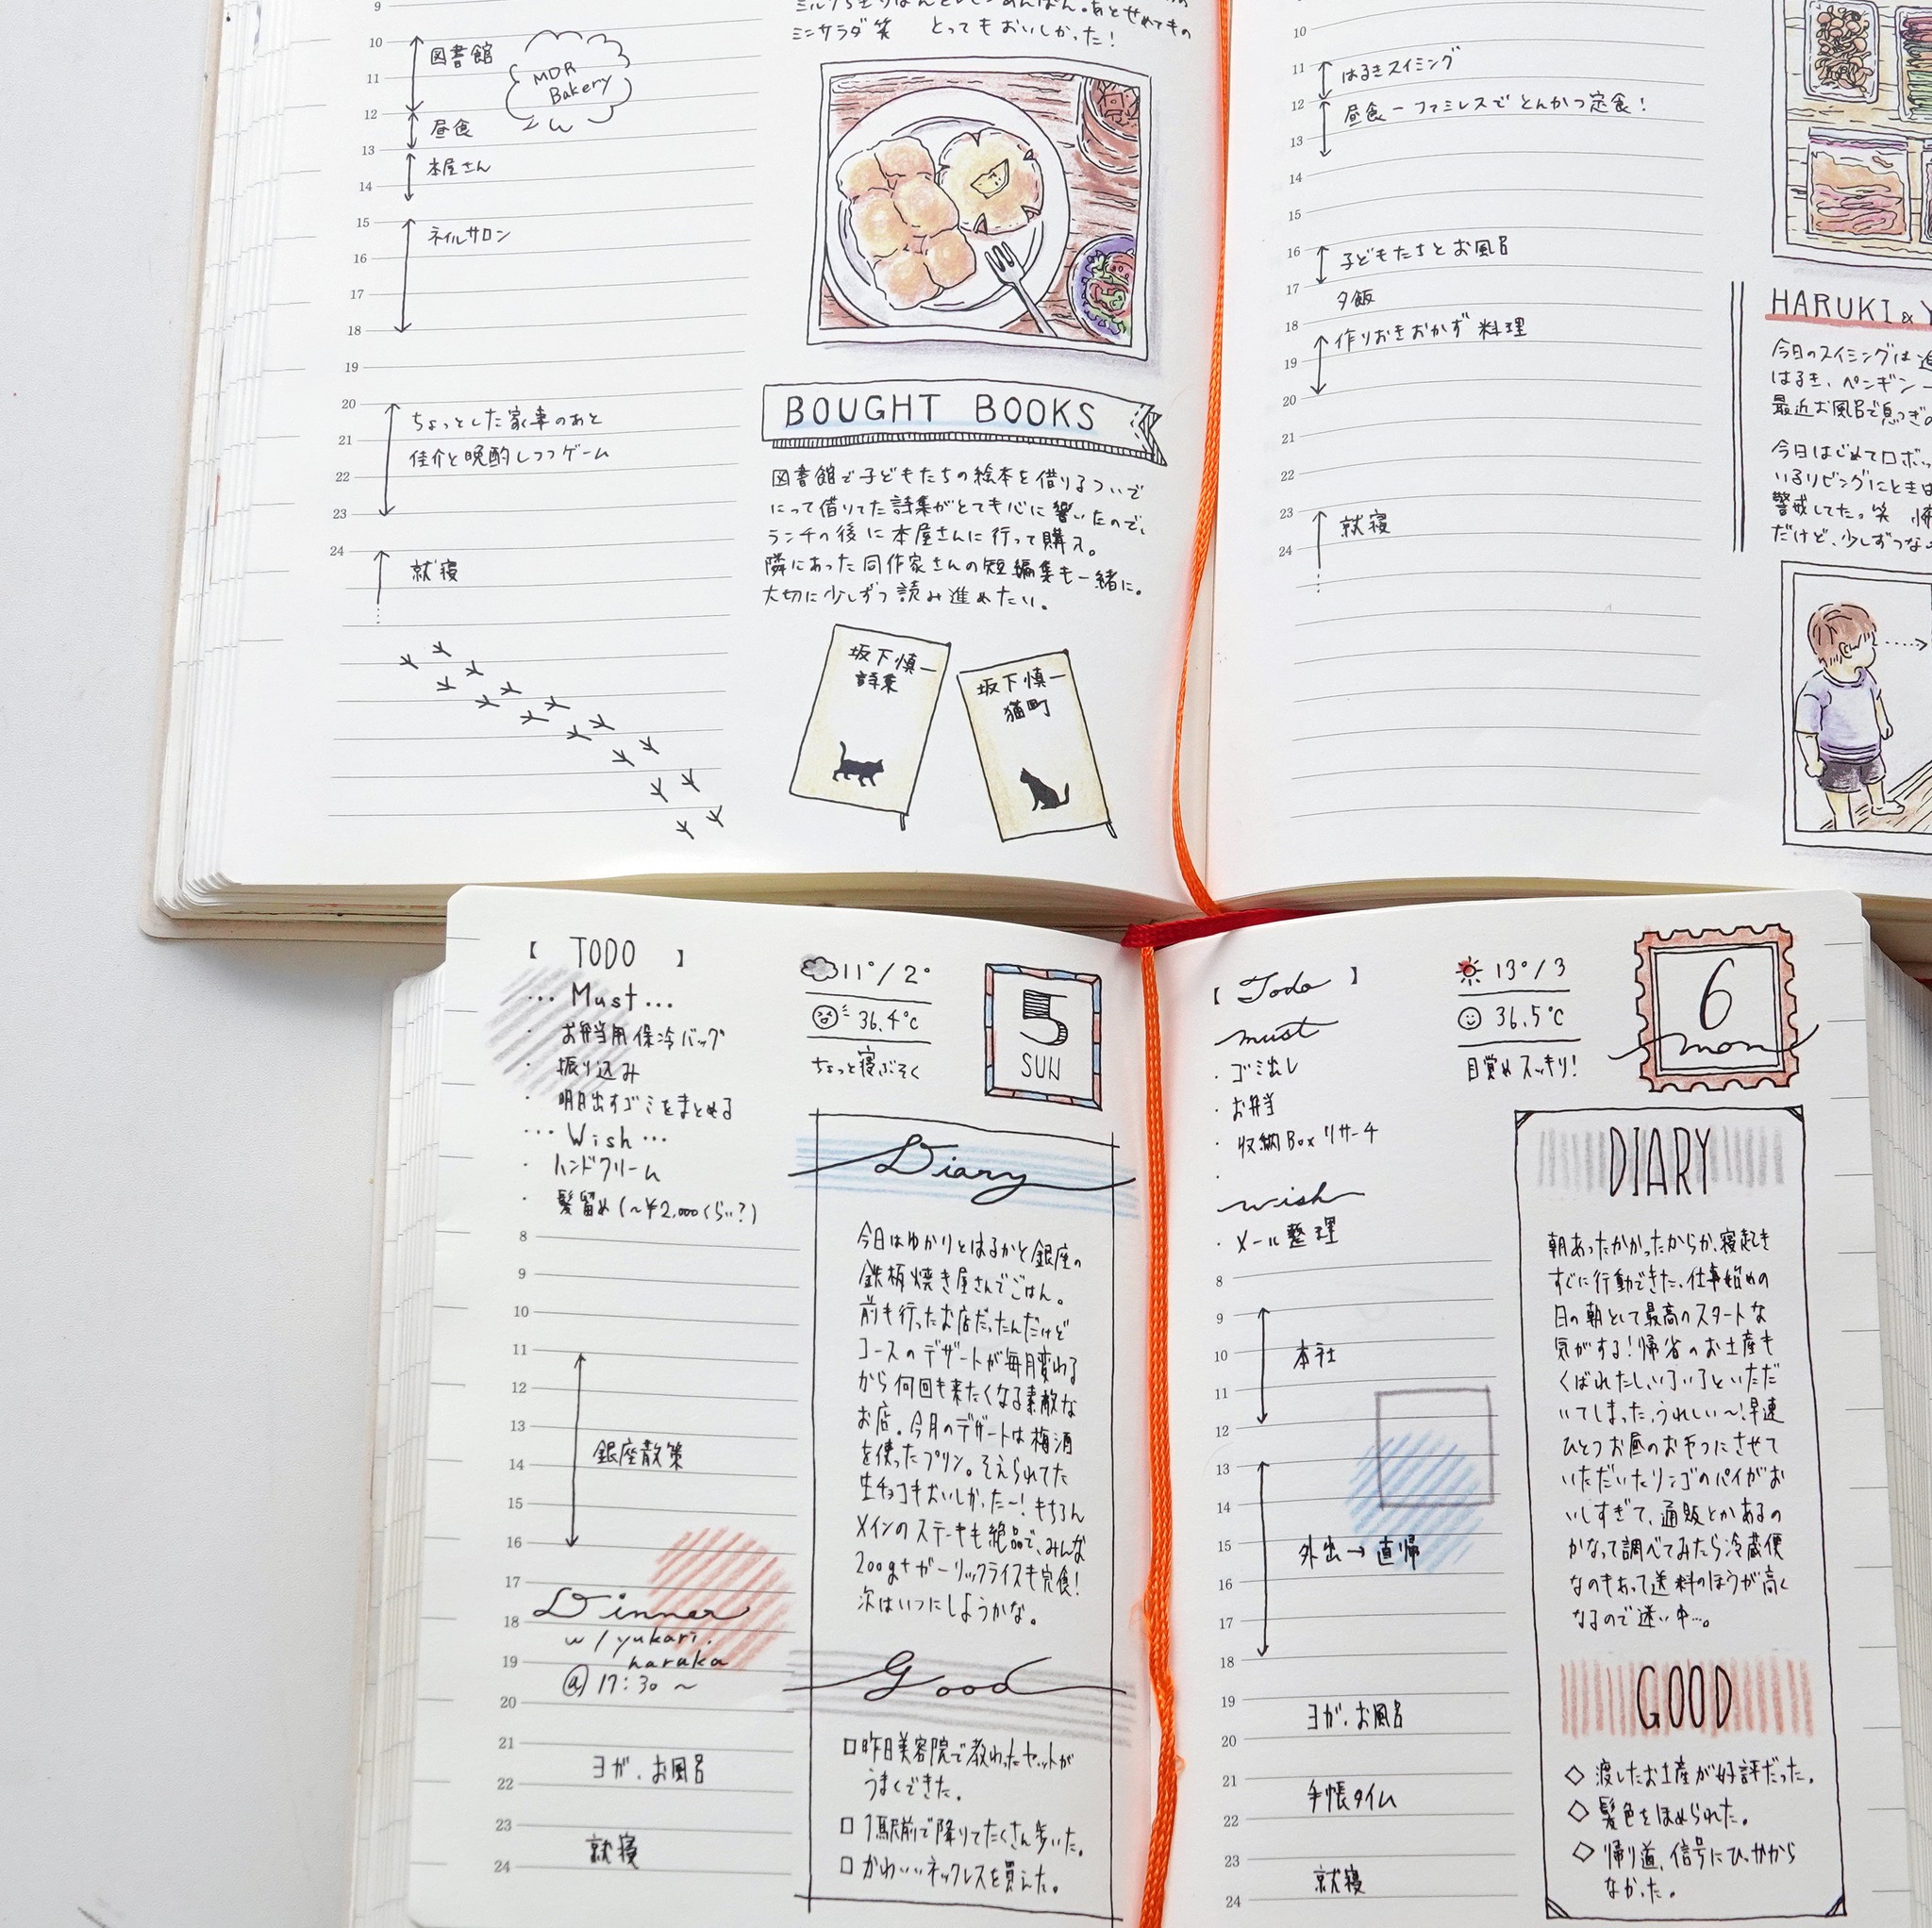 9
10
図書館
MDR
Bakery
11
12
昼食
13
本屋さん
14
15
ネイルサロン
16
17
18
19
20
ちょっとした家事のあと
21
佳介と晩酌しつつゲーム
22
23
24
就寝
ミニサラダ笑 とってもおいしかった!
BOUGHT BOOKS
図書館で子どもたちの絵本を借りるついで
にって借りてた詩集がとても心に響いたので、
ランチの後に本屋さんに行って購入。
隣にあった同作家さんの短編集も一緒に。
大切に少しずつ読み進めたい。
坂下慎一
詩集
坂下慎一
猫町
10
11
はるきスイミング
12
昼食ーファミレスでとんかつ定食!
13
14
15
16
子どもたちとお風呂
17
夕飯
18
作りおきおかず料理
19
20
21
22
23
就寝
24
HARUKI &
今日のスイミングは
はるき、ペンギン
最近お風呂で息つぎの
今日はじめてロボッ
いるリビングにときは
警戒してた。笑
だけど、少しずつな
【 TODO 】
... Must ...
・ お弁当用保冷バッグ
・ 振り込み
・ 明日出すゴミをまとめる
... Wish ...
・ ハンドクリーム
・ 髪留め(~¥2,000くらい?)
8
9
10
11
12
13
銀座散策
14
15
16
17
Dinner
18
w/ yukari.
haruka
19
@ 17:30 ~
20
21
ヨガ、お風呂
22
23
就寝
24
11°/2°
36.4℃
ちょっと寝ぶそく
5
SUN
Diary
今日はゆかりとはるかと銀座の
鉄板焼き屋さんでごはん。
前も行ったお店だったんだけど
コースのデザートが毎月変わる
から何回も来たくなる素敵な
お店。今月のデザートは梅酒
を使ったプリン。そえられてた
生チョコもおいしかったー!もちろん
メインのステーキも絶品で、みんな
200g+ガーリックライスも完食!
次はいつにしようかな。
Good
□昨日美容院で教わったセットが
うまくできた。
□1駅前で降りてたくさん歩いた。
□かわいいネックレスを買えた。
【 Todo 】
must
・ゴミ出し
・お弁当
・収納Boxリサーチ
・
wish
・メール整理
8
9
10
本社
11
12
13
14
15
外出→直帰
16
17
18
19
ヨガ、お風呂
20
21
手帳タイム
22
23
就寝
24
13°/3
36.5℃
目覚めスッキリ!
6
mon
DIARY
朝あったかかったからか、寝起き
すぐに行動できた。仕事始めの
日の朝として最高のスタートな
気がする!帰省のお土産も
くばれたし、いろいろといただ
いてしまった。うれしい〜!早速
ひとつお昼のおやつにさせて
いただいたリンゴのパイがお
いしすぎて、通販とかあるの
かなって調べてみたら冷蔵便
なのもあって送料のほうが高く
なるので迷い中…。
GOOD
◇渡したお土産が好評だった。
◇髪色をほめられた。
◇帰り道、信号にひっかから
なかった。